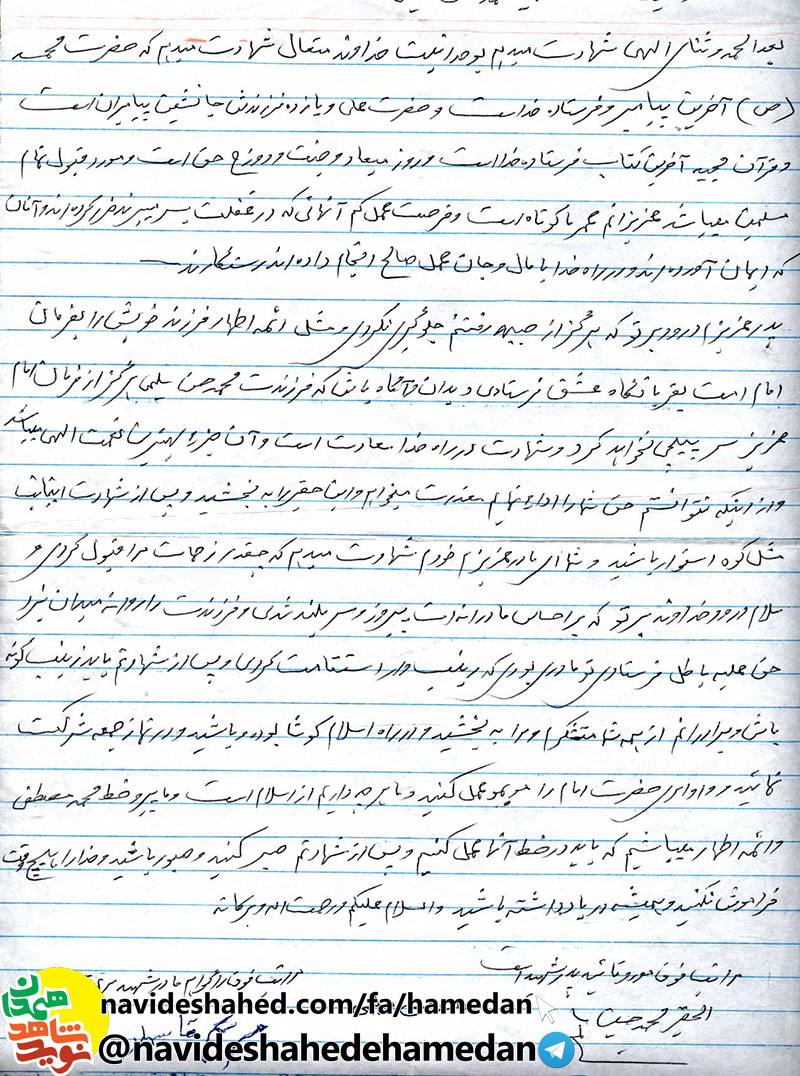 بعد الحمد و ثنای الهی شهادت میدهم بوحدانیت خداوند متعال شهادت میدهم که حضرت محمد
(ص) آخرین پیامبر و فرستاده خداست و حضرت علی و یازده فرزندش جانشین پیامبران است
و قرآن مجید آخرین کتاب فرستاده خدا است و روز میعاد و جنت و دوزخ حق است و مورد قبول تمام
مسلمین میباشد عزیزانم عمر ما کوتاه است و فرصت عمل کم آنهائی که در غفلت بسر میبرند ضرر کرده اند و آنان
که ایمان آورده اند و در راه خدا با مال و جان عمل صالح انجام داده اند رستگارند
پدر عزیزم درود بر تو که هرگز از جبهه رفتنم جلوگیری نکردی و مثل ائمه اطهار فرزند خویش را بفرمان
امام امت بقربانگاه عشق فرستادی و بدان و آگاه باش که فرزندت محمد حسن سلیمی هرگز از فرمان امام
عزیز سرپیچی نخواهد کرد و شهادت در راه خدا سعادت است و آن جزء بهترین نعمت الهی میباشد
و از اینکه نتوانستم حق شما را ادا نمایم معذرت میخواهم و این حقیر را به بخشید و پس از شهادت
مثل کوه استوار باشید و شما ای مادر عزیزم خودم شهادت میدهم که چقدر زحمات مرا قبول کردی و
سلام و درود خداوند بر تو که بر احساس مادرانه ات پیروز و سربلند شدی و فرزندت را روانه میدان نبرد
حق علیه باطل فرستادی تو مادری بودی که زینب وار استقامت کردی و پس از شهادتم باید زینب گونه
باش و برادرانم از همه شما متشکرم و مرا به بخشید و در راه اسلام کوشا بوده و باشید و در نماز جمعه شرکت
نمائید و اوامر حضرت امام را مو بمو عمل کنید و ما هر چه داریم از اسلام است و ما پیرو خط محمد مصطفی
و ائمه اطهار میباشیم که باید در خط آنها عمل کنیم و پس از شهادتم صبر کنید و صبور باشید و خدا را هیچ وقت
فراموش نکنید و همیشه در یاد داشته باشید والسلام علیکم و رحمت اله و برکاته
مراتب فوق مورد تائید پدر شهید است
مراتب فوق را گواهم مادر شهید
الحقیر محمد حسین
navideshahed.com/fa/hamedan
@navideshahedehamedan
نوید شاهد همدان